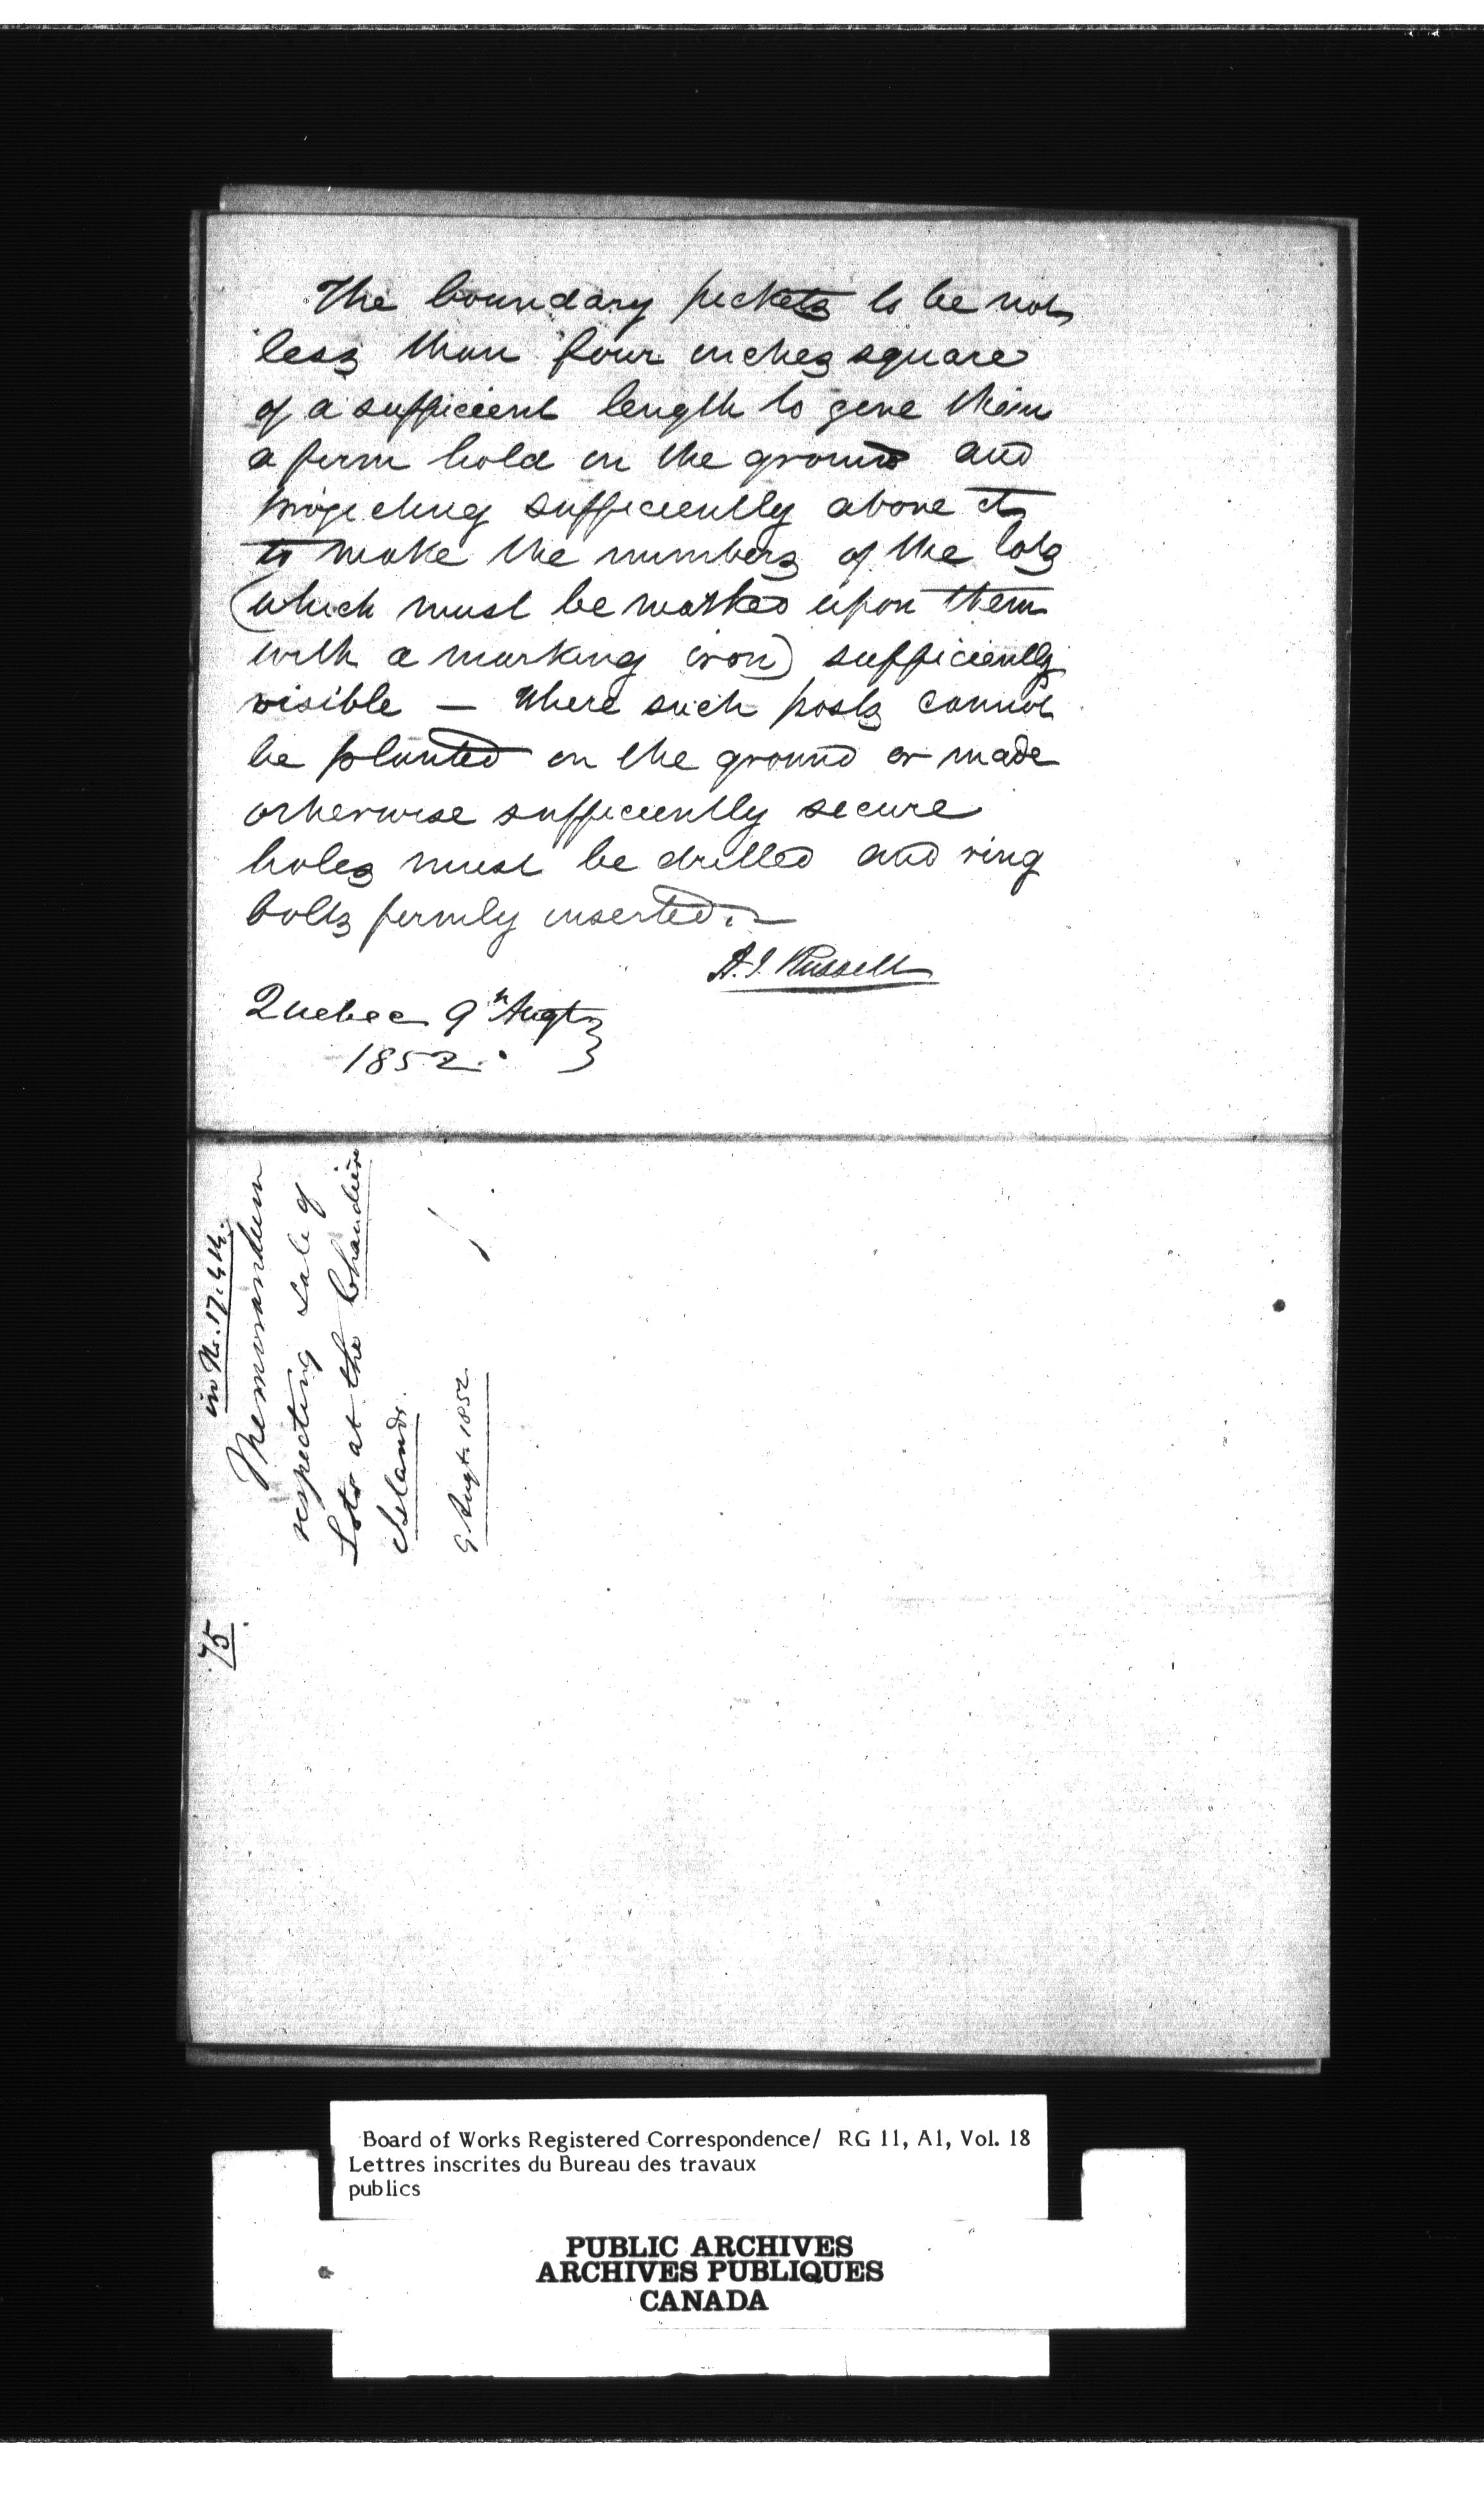 The boundary pickets to be not
less than four inches square
of a sufficient length to give them
a firm hold in the ground and
projecting sufficiently above it
to make the numbers of the lots
(which must be marked upon them
with a marking iron) sufficiently
visible — Where such posts cannot
be planted in the ground or made
otherwise sufficiently secure
holes must be drilled and ring
bolts firmly inserted.
A.J. Russell
Quebec 9th Augt
1852.
in No. 17.
Memorandum
respecting Sale of
Lots at the Chaudière
Islands.
9 Augt. 1852
75
Board of Works Registered Correspondence/ RG 11, A1, Vol. 18
Lettres inscrites du Bureau des travaux
publics
PUBLIC ARCHIVES
ARCHIVES PUBLIQUES
CANADA